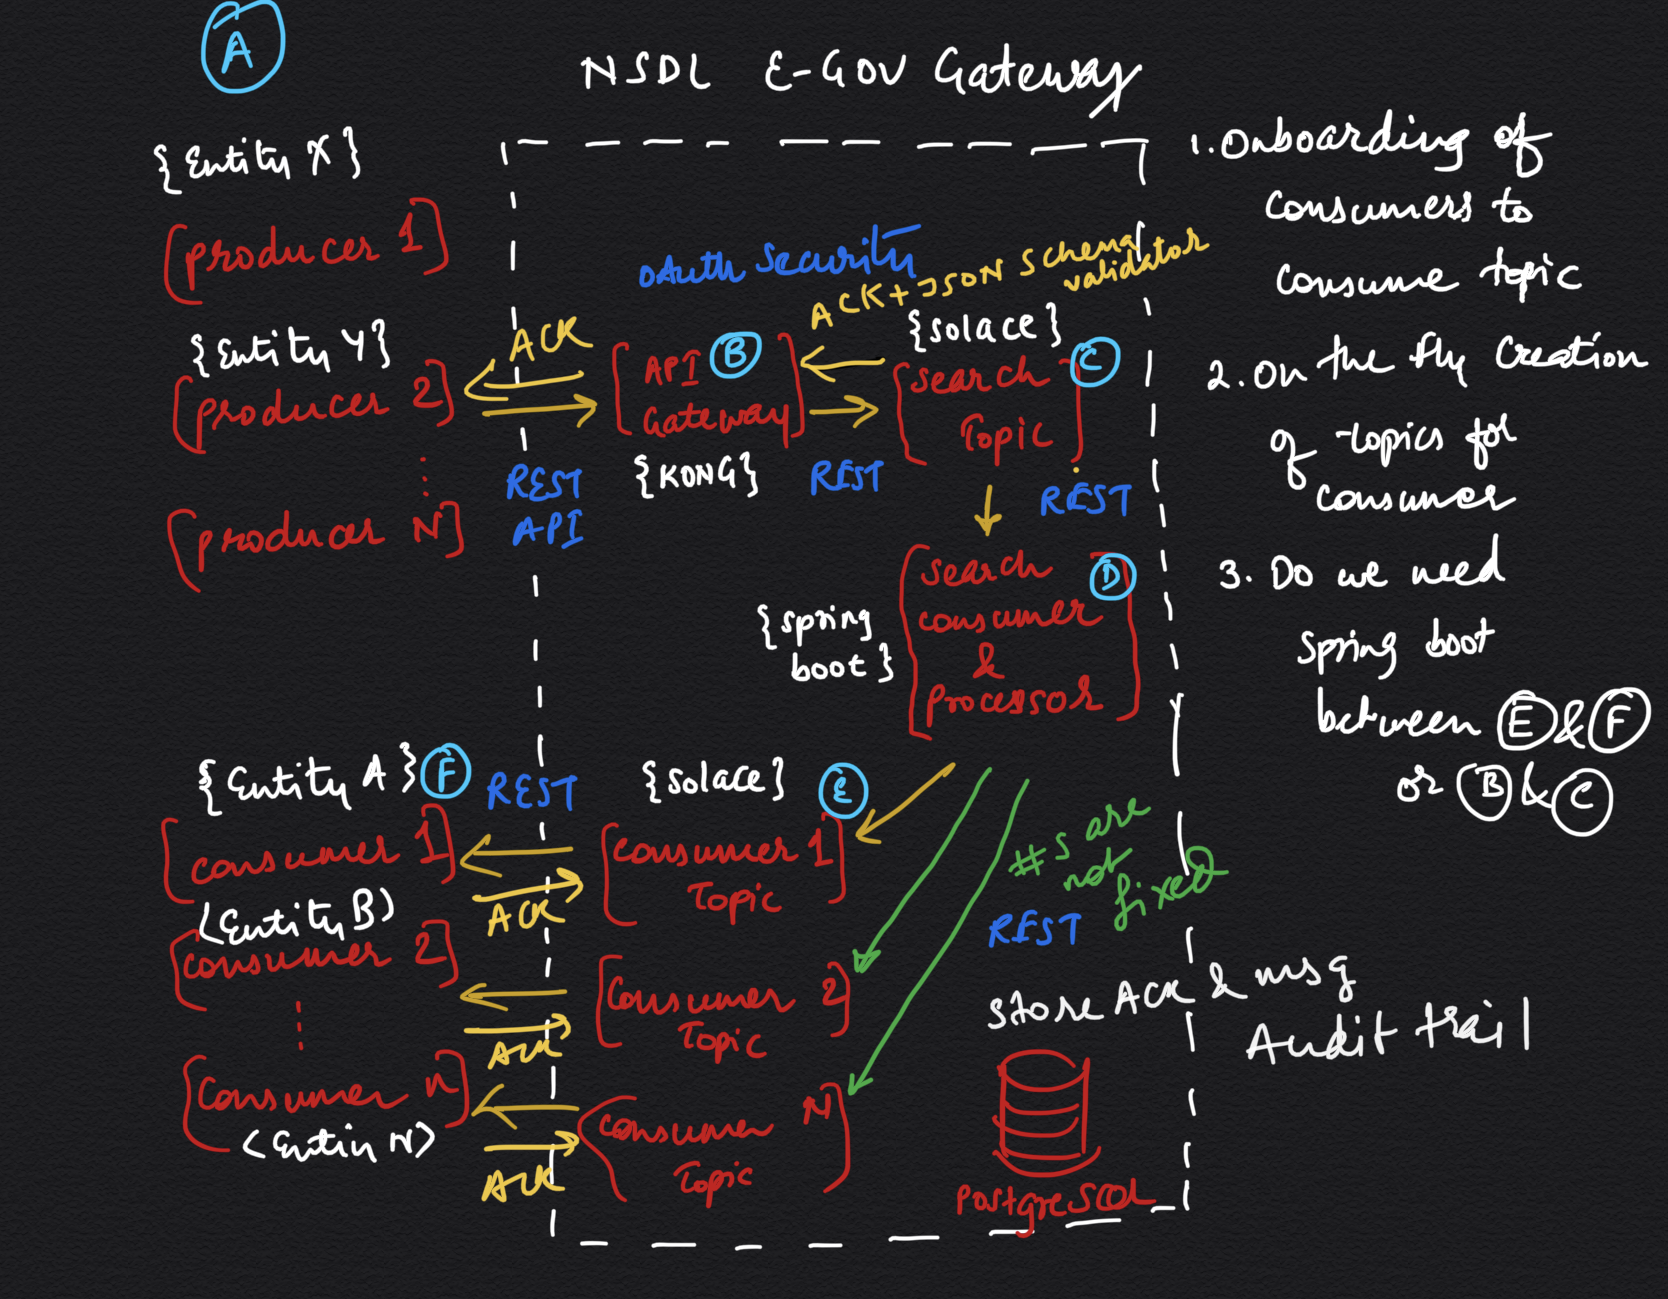 A
NSDL E-GOV Gateway
{Entity X}
[producer 1]
{Entity Y}
[producer 2]
[producer N]
ACK
REST
API
OAuth Security
ACK+JSON Schema
validator
[API B
Gateway]
{KONG}
REST
{solace}
[search C
Topic]
REST
{spring
boot}
[search D
consumer
&
processor]
{Entity A} F
[consumer 1]
<Entity B>
[consumer 2]
[consumer n]
<Entin N>
REST
ACK
ACK
ACK
{solace} E
[consumer 1
Topic]
[consumer 2
Topic]
[consumer N
Topic]
#s are
not
fixed
REST
store ACK & msg
Audit trail
PostgreSQL
1. Onboarding of
consumers to
consume topic
2. On the fly creation
of topics for
consumer
3. Do we need
spring boot
between E & F
or B & C